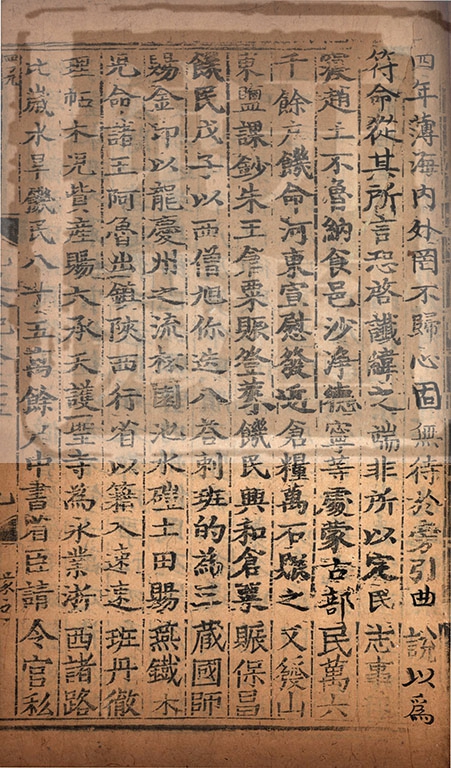 四年薄海内外罔不歸心固無待於旁引曲說以爲
符命從其所言恐啓讖緯之端非所以定民志事
趙王不魯納食邑沙净德寧等處蒙古部民萬六
千餘户饑命河東宣慰發近倉糧萬石賑之又發山
東鹽課鈔朱王倉粟賑登萊饑民興和倉粟賑保昌
饑民戊子以西僧旭你迭八荅剌班的爲三藏國師
賜金印以龍慶州之流杯園池水磑土田賜燕鐵木
兒命諸王阿魯出鎮陜西行省以籍入速速班丹徹
理帖木兒貲産賜大承天護聖寺為永業浙西諸路
比歲水旱饑民八十五萬餘户中書省臣請令官私